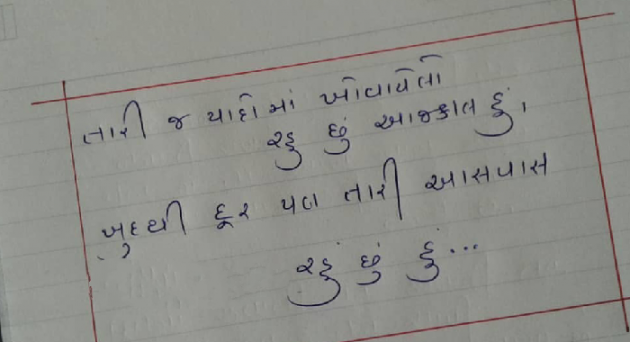 તારી જ યાદોમાં ખોવાયેલો
રહું છું આજકાલ હું,
ખુદથી દૂર પણ તારી આસપાસ
રહું છું હું...